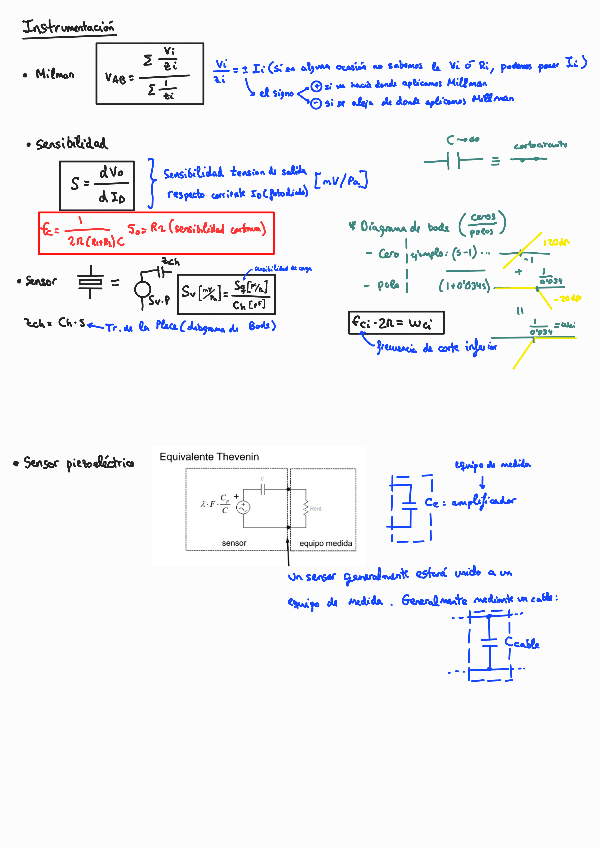 Instrumentación
• Milman
V_AB = Σ Vi/Zi / Σ 1/Zi
Vi/Zi = ± Ii (si en alguna ocasión no sabemos la Vi o Ri, podemos poner Ii)
el signo
+ si va hacia donde aplicamos Millman
- si se aleja de donde aplicamos Millman
• Sensibilidad
S = dVo / dI_D
Sensibilidad tension de salida
respecto corriente I_D (fotodiodo)
[mV/Pa]
C→∞
≡
cortocircuito
fc = 1 / 2π(R1+R2)C
So = R2 (sensibilidad continua)
* Diagrama de bode (ceros/polos)
- Cero ejemplo: (s-1) ...
-1
+
- polo
(1+0'034s)
1/0'034
-20dB
=
1/0'034 = wci
• Sensor
=
Zch
Sv·P
Sv [mV/Pa] = Sq [pC/Pa] / Ch [pF]
sensibilidad de carga
Zch = Ch·S ← Tr. de la Place (diagrama de Bode)
fci · 2π = wci
frecuencia de corte inferior
• Sensor piezoeléctrico
Equivalente Thevenin
λ·F·Cp/C
+
C
Rent
sensor
equipo medida
equipo de medida
Ce: amplificador
Un sensor generalmente estará unido a un
equipo de medida. Generalmente mediante un cable:
Ccable